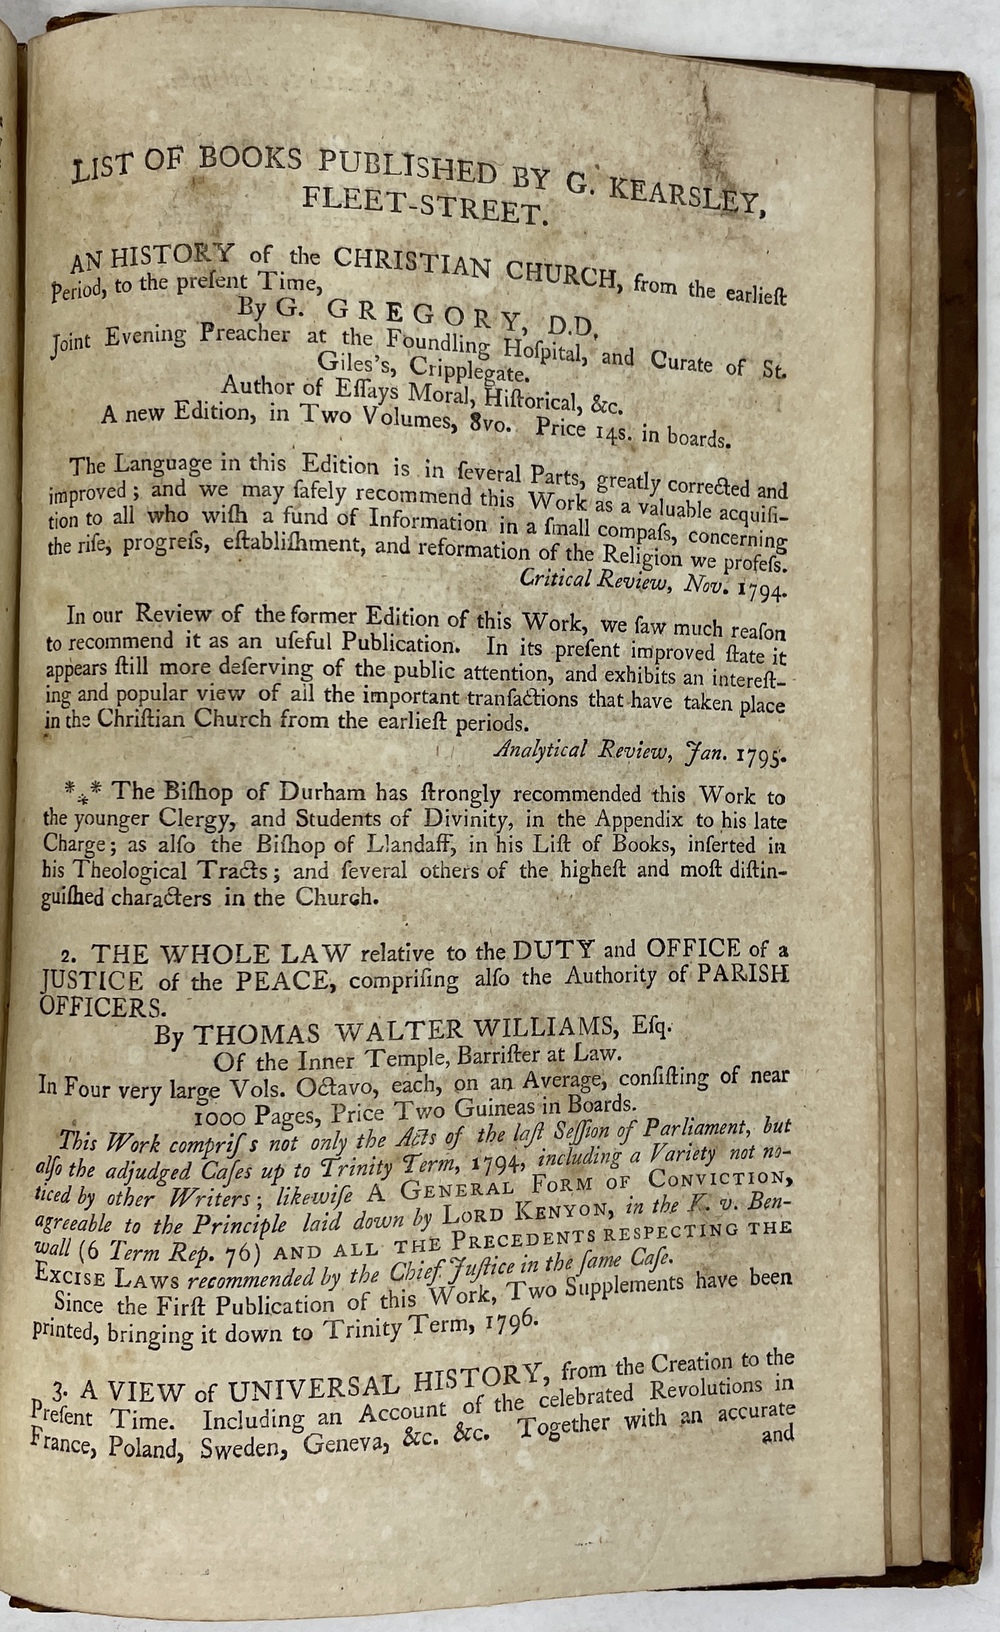 LIST OF BOOKS PUBLISHED BY G. KEARSLEY,
FLEET-STREET.
AN HISTORY of the CHRISTIAN CHURCH, from the earlieſt
Period, to the preſent Time,
By G. GREGORY, D.D.
Joint Evening Preacher at the Foundling Hoſpital, and Curate of St.
Giles's, Cripplegate.
Author of Eſſays Moral, Hiſtorical, &c.
A new Edition, in Two Volumes, 8vo. Price 14s. in boards.
The Language in this Edition is in ſeveral Parts, greatly corrected and
improved; and we may ſafely recommend this Work as a valuable acquiſi-
tion to all who wiſh a fund of Information in a ſmall compaſs, concerning
the riſe, progreſs, eſtabliſhment, and reformation of the Religion we profeſs.
Critical Review, Nov. 1794.
In our Review of the former Edition of this Work, we ſaw much reaſon
to recommend it as an uſeful Publication. In its preſent improved ſtate it
appears ſtill more deſerving of the public attention, and exhibits an intereſt-
ing and popular view of all the important tranſactions that have taken place
in the Chriſtian Church from the earlieſt periods.
Analytical Review, Jan. 1795.
*⁎* The Biſhop of Durham has ſtrongly recommended this Work to
the younger Clergy, and Students of Divinity, in the Appendix to his late
Charge; as alſo the Biſhop of Llandaff, in his Liſt of Books, inſerted in
his Theological Tracts; and ſeveral others of the higheſt and moſt diſtin-
guiſhed characters in the Church.
2. THE WHOLE LAW relative to the DUTY and OFFICE of a
JUSTICE of the PEACE, compriſing alſo the Authority of PARISH
OFFICERS.
By THOMAS WALTER WILLIAMS, Eſq.
Of the Inner Temple, Barriſter at Law.
In Four very large Vols. Octavo, each, on an Average, conſiſting of near
1000 Pages, Price Two Guineas in Boards.
This Work compriſ s not only the Acts of the laſt Seſſion of Parliament, but
alſo the adjudged Caſes up to Trinity Term, 1794, including a Variety not no-
ticed by other Writers; likewiſe A GENERAL FORM OF CONVICTION,
agreeable to the Principle laid down by LORD KENYON, in the K. v. Ben-
wall (6 Term Rep. 76) AND ALL THE PRECEDENTS RESPECTING THE
EXCISE LAWS recommended by the Chief Juſtice in the ſame Caſe.
Since the Firſt Publication of this Work, Two Supplements have been
printed, bringing it down to Trinity Term, 1796.
3. A VIEW of UNIVERSAL HISTORY, from the Creation to the
Preſent Time. Including an Account of the celebrated Revolutions in
France, Poland, Sweden, Geneva, &c. &c. Together with an accurate
and